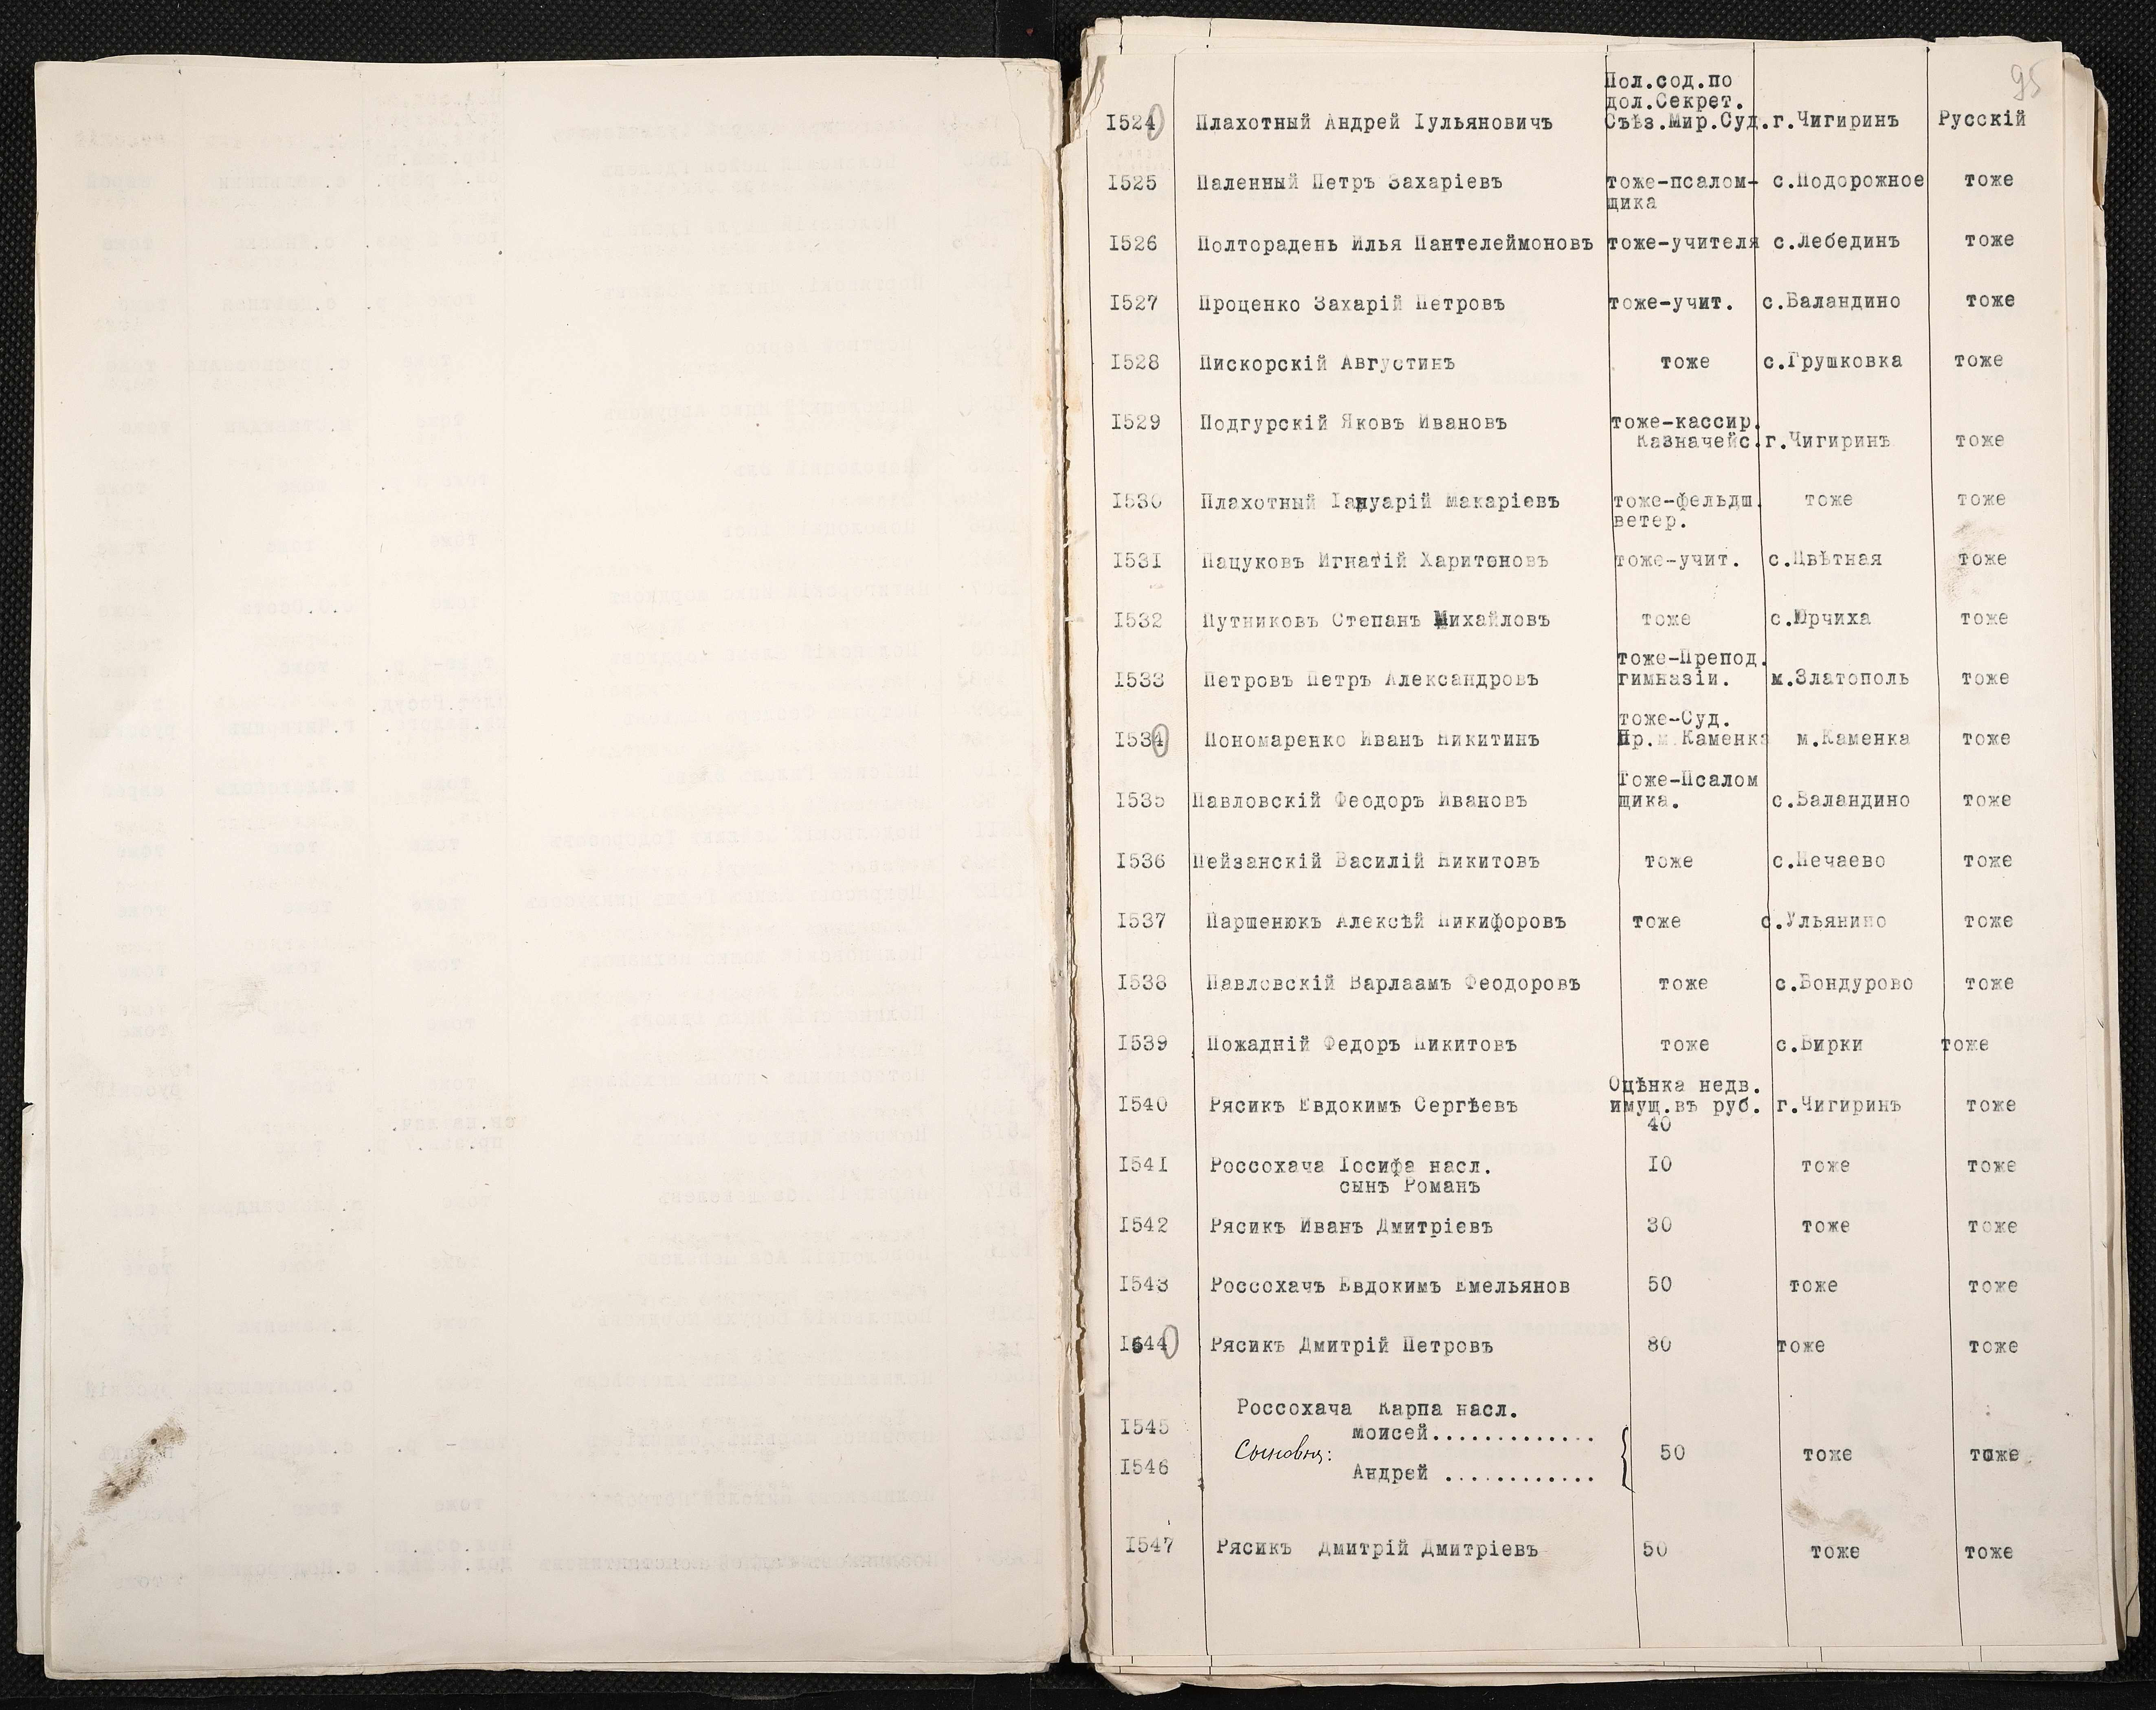 95
Пол.сод.по
дол.Секрет.
1524 Плахотный Андрей Іульяновичъ Съѣз.Мир.Суд. г.Чигиринъ Русскій
1525 Паленный Петръ Захаріевъ тоже-псалом- с.Подорожное тоже
щика
1526 Полторадень Илья Пантелеймоновъ тоже-учителя с.Лебединъ тоже
1527 Проценко Захарій Петровъ тоже-учит. с.Баландино тоже
1528 Пискорскій Августинъ тоже с.Грушковка тоже
1529 Подгурскій Яковъ Ивановъ тоже-кассир.
Казначейс. г.Чигиринъ тоже
1530 Плахотный Іануарій Макаріевъ тоже-фельдш. тоже тоже
ветер.
1531 Пацуковъ Игнатій Харитоновъ тоже-учит. с.Цвѣтная тоже
1532 Путниковъ Степанъ Михайловъ тоже с.Юрчиха тоже
тоже-Препод.
1533 Петровъ Петръ Александровъ гимназіи. м.Златополь тоже
тоже-Суд.
1534 Пономаренко Иванъ Никитинъ Пр.м.Каменка м.Каменка тоже
Тоже-Псалом
1535 Павловскій Феодоръ Ивановъ щика. с.Баландино тоже
1536 Пейзанскій Василій Никитовъ тоже с.Нечаево тоже
1537 Паршенюкъ Алексѣй Никифоровъ тоже с.Ульянино тоже
1538 Павловскій Варлаамъ Феодоровъ тоже с.Бондурово тоже
1539 Пожадній Федоръ Никитовъ тоже с.Бирки тоже
Оцѣнка недв.
1540 Рясикъ Евдокимъ Сергѣевъ имущ.въ руб. г.Чигиринъ тоже
40
1541 Россохача Іосифа насл. 10 тоже тоже
сынъ Романъ
1542 Рясикъ Иванъ Дмитріевъ 30 тоже тоже
1543 Россохачъ Евдокимъ Емельянов 50 тоже тоже
1544 Рясикъ Дмитрій Петровъ 80 тоже тоже
Россохача Карпа насл.
1545 Моисей.............
Сыновья: 50 тоже тоже
1546 Андрей ............
1547 Рясикъ Дмитрій Дмитріевъ 50 тоже тоже